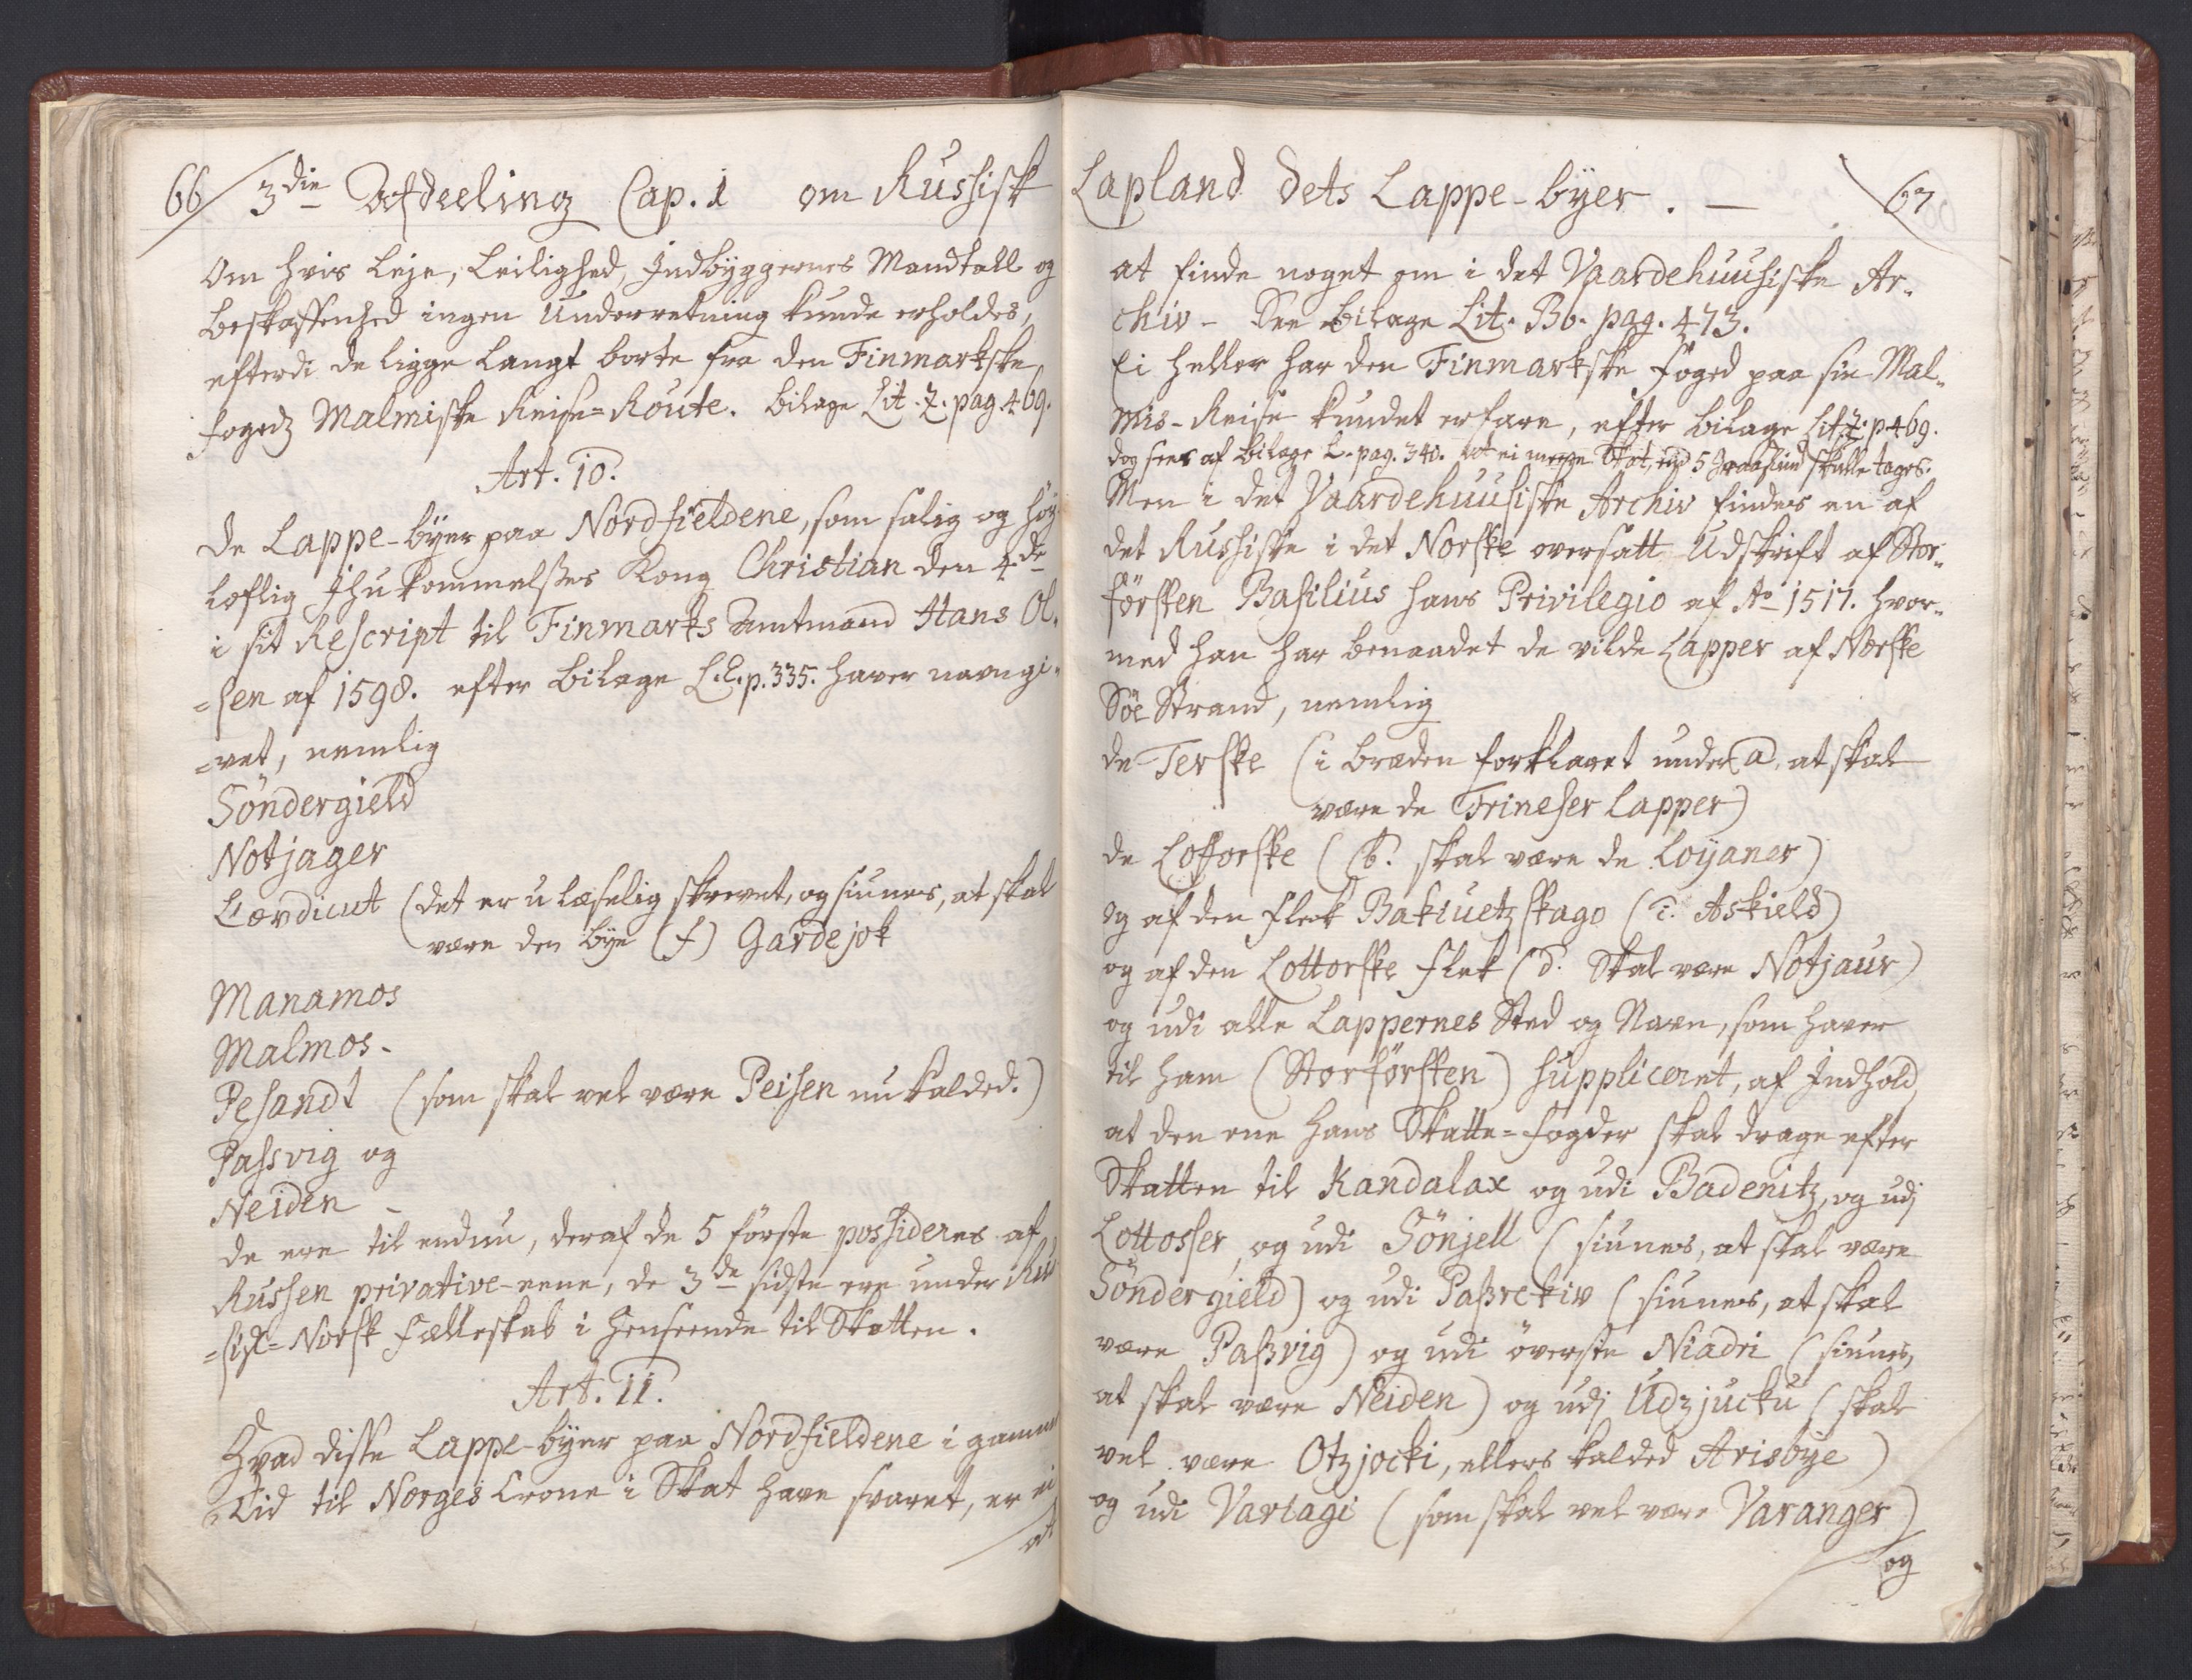 66 3die Afdeeling Cap. 1 om Russisk
Om hvis Leje, Leilighed, Indbyggernes Mandtall og
beskaffenhed ingen Underretning kunde erholdes,
efterdi de ligge langt borte fra den Finmarkske
fogeds Malmiske Reise-Route. bilage Lit. Z. pag. 469.
Art. 10.
De Lappe-byer paa Nordfieldene, som salig og høy
loflig Ihukommelses Kong Christian den 4de
i sit Rescript til Finmarks Amtmand Hans Ol-
=sen af 1598. efter bilage L.E. p. 335. haver navngi-
=vet, nemlig
Søndergield
Notjager
Lovdicut (det er ulæselig skrevet, og siunes, at skal
være den bye (f) Gardejok
Manamos
Malmos.
Pesandt (som skal vel være Peisen nu kalded.)
Passvig og
Neiden -
de ere til endnu, deraf de 5 første possideres af
Russen privative-eene, de 3de sidste ere under Rus
=sisk-Norsk fælleskab i henseende til Skatten.
Art. 11.
Hvad disse Lappe-byer paa Nordfieldene i gammel
Tid til Norges Crone i Skat have svaret, er ei
at
Lapland dets Lappe-byer. — 67
at finde noget om i det Vaardehuusiske Ar-
chiv - See bilage Lit. Bb. pag. 473.
Ei heller har den Finmarkske foged paa sin Mal-
mis-Reise kundet erfare, efter bilage Lit. Z. p 469.
dog sees af bilage L. pag. 340. at ei meere Skat, end 5 Graaskind skulle tages.
Men i det Vaardehuusiske Archiv findes en af
det Russiske i det Norske oversatt Udskrift af Stor-
førsten Basilius hans Privilegio af Ao 1517. hvor-
med han har benaadet de vilde Lapper af Norske
Søe Strand, nemlig
de Terske (i bræden forklaret under a, at skal
være de Trineser Lapper)
de Lofforske (b. skal være de Loyaner)
og af den flek Bakiuetzskago (c. Askield)
og af den Lottorske flek (d. Skal være Notjaur)
og udi alle Lappernes Sted og Navn, som haver
til ham (Storførsten) suppliceret, af Indhold
at den ene hans Skatte-fogder skal drage efter
Skatten til Kandalax og udi Badenitz, og udj
Lottosser, og udi Sönjell (siunes, at skal være
Søndergield) og udi Passrekiv (siunes, at skal
være Passvig) og udi øverste Niadri (siunes,
at skal være Neiden) og udj Udzjucku (skal
vel være Otzjocki, ellers kalded Arisbye)
og udi Varlagi (som skal vel være Varanger)
og